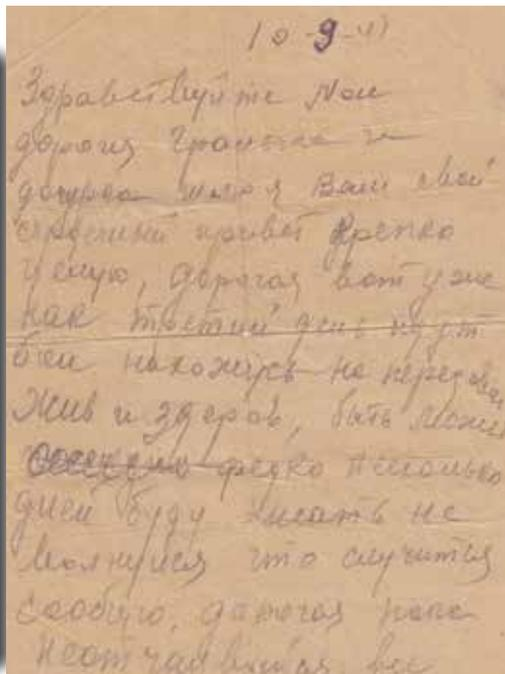 10-9-41
Здравствуйте мои
дорогия и
дочурка шлю я Вам свой
сердечный привет Крепко
целую, дорогая вот уже
как третий день идут
бои нахожусь на передовой
Жив и здоров, быть может
редко несколько
дней буду писать не
волнуйся что случится
сообщу, дорогая пока
неотчаивайся все